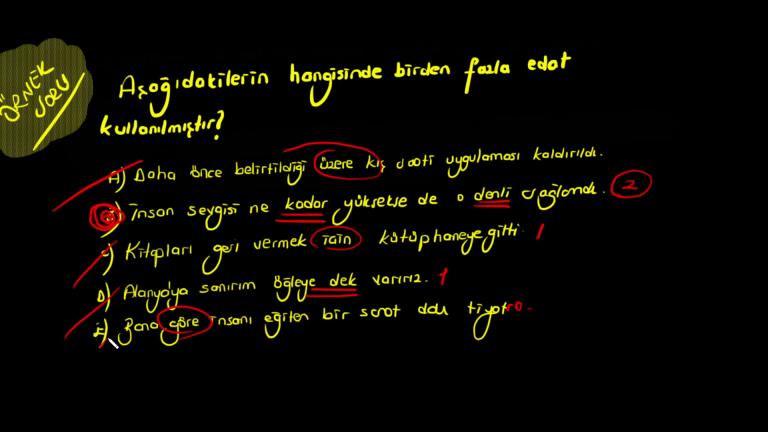 ÖRNEK
SORU
Aşağıdakilerin hangisinde birden fazla edat
kullanılmıştır?
A) Daha önce belirtildiği üzere kış saati uygulaması kaldırıldı.
B) İnsan sevgisi ne kadar yüksekse de o denli sağlamdı. 2
C) Kitapları geri vermek için kütüphaneye gitti. 1
D) Alanya'ya sanırım öğleye dek varırız. 1
E) Bana göre insanı eğiten bir sanat dalı tiyatro.